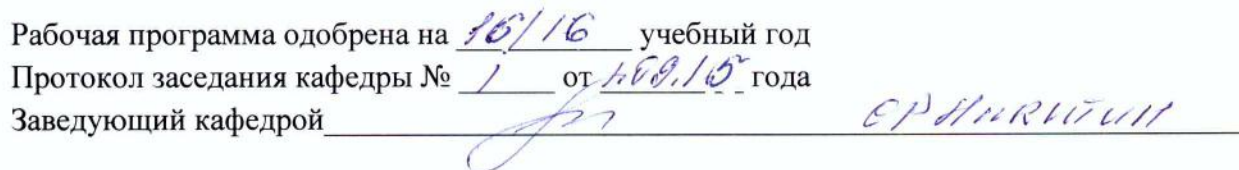 Рабочая программа одобрена на 15/16 учебный год
Протокол заседания кафедры № 1 от 1.09.15 года
Заведующий кафедрой Никитин